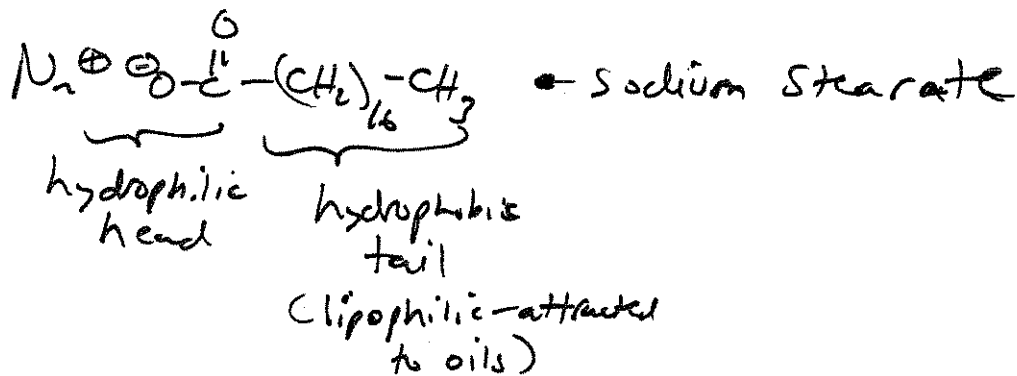 O
Na⊕ ⊖O-C-(CH₂)₁₆-CH₃ ← Sodium Stearate
hydrophilic
head
hydrophobic
tail
(lipophilic-attracted
to oils)